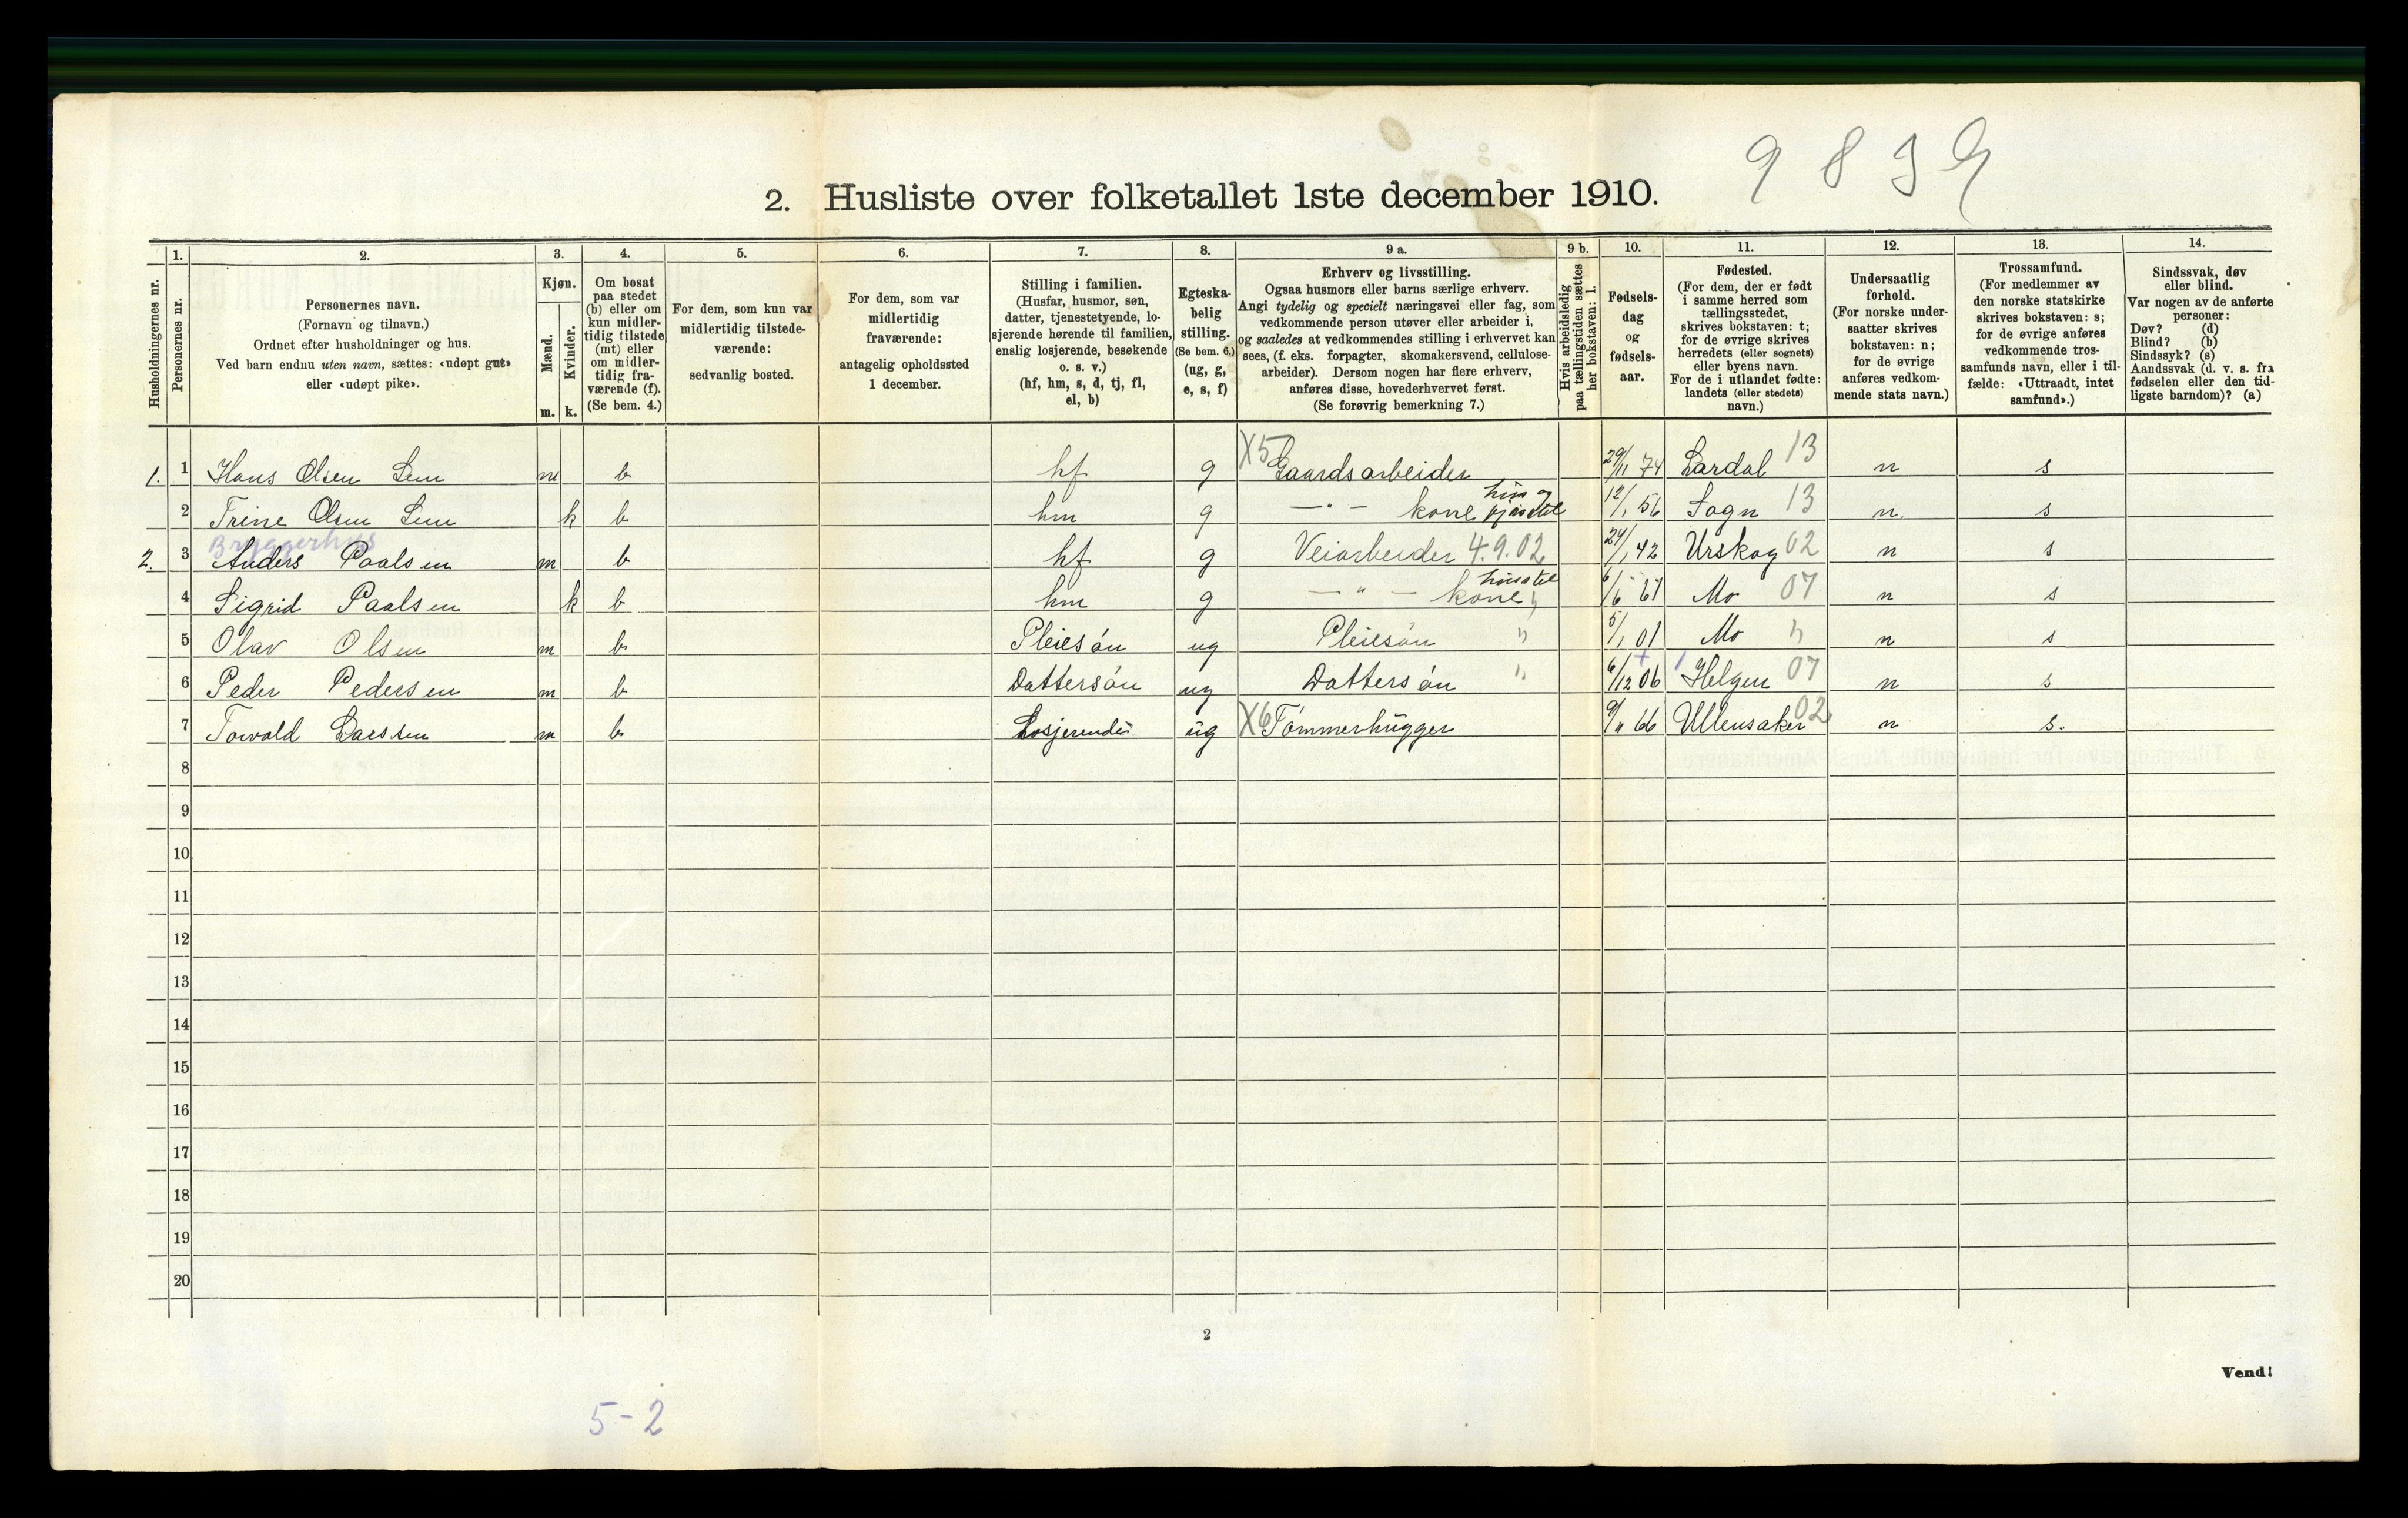 9 8 3 9
2. Husliste over folketallet 1ste december 1910.
Husholdningernes nr.
1. Personernes nr.
2.
Personernes navn.
(Fornavn og tilnavn.)
Ordnet efter husholdninger og hus.
Ved barn endnu uten navn, sættes: «udøpt gut»
eller «udøpt pike».
3.
Kjøn.
Mænd. m.
Kvinder. k.
4.
Om bosat
paa stedet
(b) eller om
kun midler-
tidig tilstede
(mt) eller
om midler-
tidig fra-
værende (f).
(Se bem. 4.)
5.
For dem, som kun var
midlertidig tilstede-
værende:
sedvanlig bosted.
6.
For dem, som var
midlertidig
fraværende:
antagelig opholdssted
1 december.
7.
Stilling i familien.
(Husfar, husmor, søn,
datter, tjenestetyende, lo-
sjerende hørende til familien,
enslig losjerende, besøkende
o. s. v.)
(hf, hm, s, d, tj, fl,
el, b)
8.
Egteska-
belig
stilling.
(Se bem. 6.)
(ug, g,
e, s, f)
9 a.
Erhverv og livsstilling.
Ogsaa husmors eller barns særlige erhverv.
Angi tydelig og specielt næringsvei eller fag, som
vedkommende person utøver eller arbeider i,
og saaledes at vedkommendes stilling i erhvervet kan
sees, (f. eks. forpagter, skomakersvend, cellulose-
arbeider). Dersom nogen har flere erhverv,
anføres disse, hovederhvervet først.
(Se forøvrig bemerkning 7.)
9 b.
Hvis arbeidsledig
paa tællingstiden sættes
her bokstaven: l.
10.
Fødsels-
dag
og
fødsels-
aar.
11.
Fødested.
(For dem, der er født
i samme herred som
tællingsstedet,
skrives bokstaven: t;
for de øvrige skrives
herredets (eller sognets)
eller byens navn.
For de i utlandet fødte:
landets (eller stedets)
navn.)
12.
Undersaatlig
forhold.
(For norske under-
saatter skrives
bokstaven: n;
for de øvrige
anføres vedkom-
mende stats navn.)
13.
Trossamfund.
(For medlemmer av
den norske statskirke
skrives bokstaven: s;
for de øvrige anføres
vedkommende tros-
samfunds navn, eller i til-
fælde: «Uttraadt, intet
samfund».)
14.
Sindssvak, døv
eller blind.
Var nogen av de anførte
personer:
Døv? (d)
Blind? (b)
Sindssyk? (s)
Aandssvak (d. v. s. fra
fødselen eller den tid-
ligste barndom)? (a)
1. 1 Hans Olsen Lem m b hf g X5 Gaardsarbeider 29/11 74 Lardal 13 n s
2 Trine Olsen Lem k b hm g — " — kone hus og fjøsstel 12/1 56 Sogn 13 n. s
Bryggerhus
2. 3 Anders Paalsen m b hf g Veiarbeider 4.9.02 24/1 42 Urskog 02 n s
4 Sigrid Paalsen k b hm g — " — kone husstel 6/6 61 Mo 07 n s
5 Olav Olsen m b Pleiesøn ug Pleiesøn " 5/1 01 Mo " n s
6 Peder Pedersen m b Dattersøn ug Dattersøn " 6/12 06 Helgen 07 n s
7 Torvald Larssen m b Losjerende ug X6 Tømmerhugger 9/11 66 Ullensaker 02 n s.
8
9
10
11
12
13
14
15
16
17
18
19
20
2
Vend!
5-2